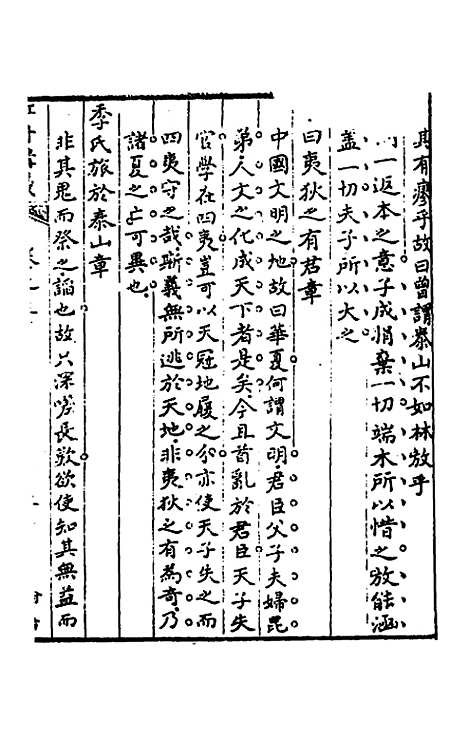 其有瘳乎故曰曾謂泰山不如林放乎
一返本之意子成悄棄一切端木所以惜之放能涵
盖一切夫子所以大之
曰夷狄之有君章
中國文明之地故曰華夏何謂文明君臣父子夫婦毘
弟人文之化成天下者是矣今且首亂於君臣天子失
官學在四夷豈可以天冠地履之分亦使天子失之而
四夷守之哉斯義無所逃於天地非夷狄之有為奇乃
諸夏之亡可異也
季氏旅於泰山章
非其鬼而祭之謟也故只深嗟長歎欲使知其無益而